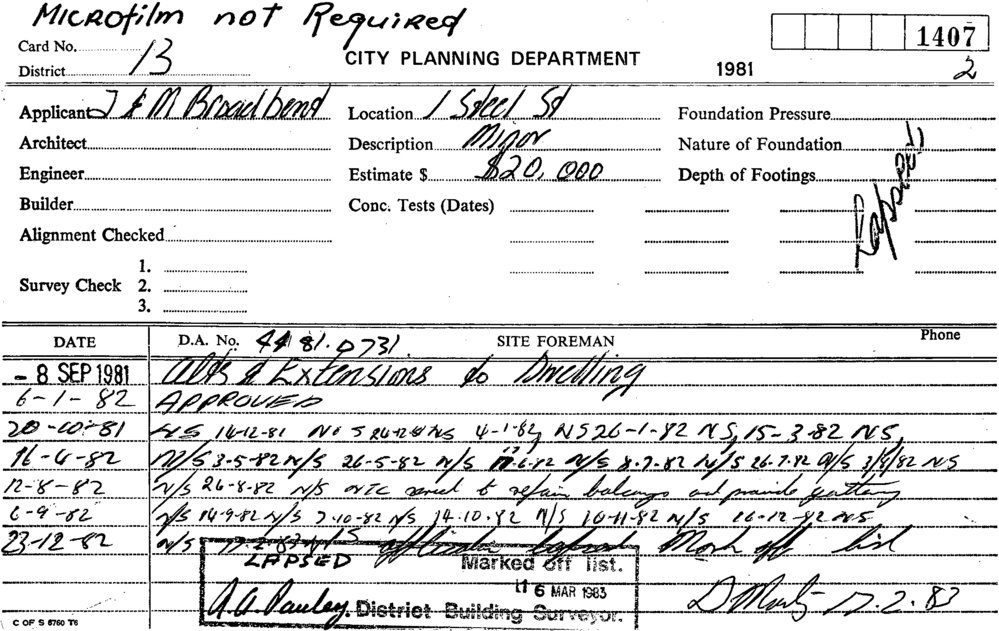 Microfilm not Required
Card No. 1407
District 13 CITY PLANNING DEPARTMENT 1981 2
Applicant J & M Broadbend Location 1 Steel St Foundation Pressure
Architect Description Minor Nature of Foundation
Engineer Estimate $ $20,000 Depth of Footings
Lapsed
Builder Conc. Tests (Dates)
Alignment Checked
1.
Survey Check 2.
3.
DATE D.A. No. 44 81.0731 SITE FOREMAN Phone
- 8 SEP 1981 Alts & Extensions to Dwelling
6-1-82 APPROVED
20-10-81 NS 14-12-81 NS 4-1-82 NS 26-1-82 NS, 15-3-82 NS,
16-4-82 N/S 3-5-82 N/S 26-5-82 N/S 17-6-82 N/S 8-7-82 N/S 26-7-82 N/S 3/8/82 NS
12-8-82 N/S 26-8-82 N/S NTC served to repair balcony and provide guttering
6-9-82 N/S 14-9-82 N/S 7-10-82 N/S 14-10-82 N/S 16-11-82 N/S 16-12-82 NS
23-12-82 N/S Mark off list
LAPSED Marked off list.
16 MAR 1983
A.A. Pauley. District Building Surveyor. 17.2.83
C OF S 6760 T6